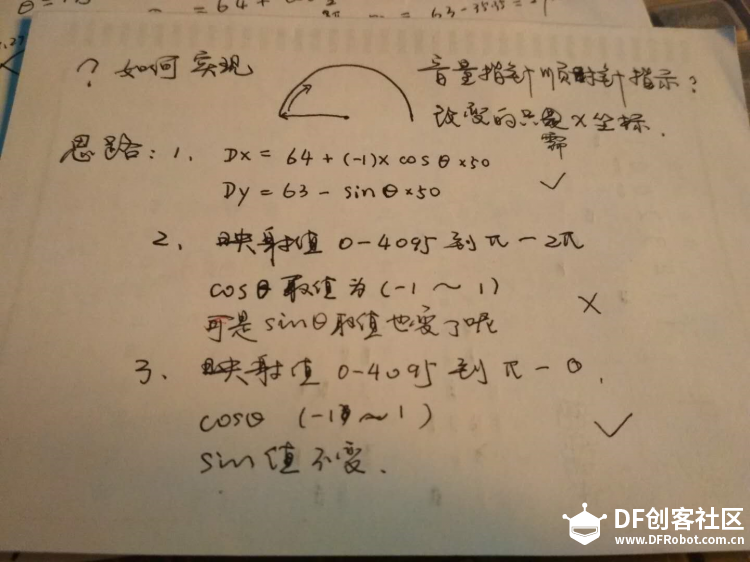 θ =
= 64 +
= 63 - 35.35 =
? 如何实现
音量指针顺时针指示?
改变的只是x坐标.
需
思路: 1. Dx = 64 + (-1)x cos θ x50
Dy = 63 - sin θ x50
✓
2. 映射值 0-4095 到 π - 2π
cos θ 取值为 (-1 ~ 1)
×
可是 sin θ 取值也变了呢
3. 映射值 0-4095 到 π - 0.
cosθ (-1 ~ 1)
✓
sin 值不变.
DF创客社区
www.DFRobot.com.cn